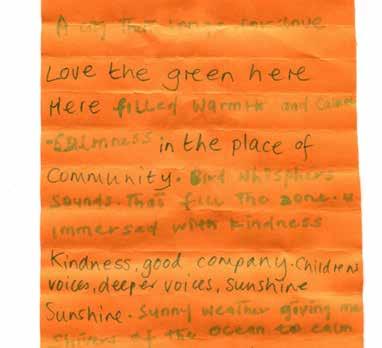 A city that longs for love
Love the green here
Here filled warmth and calmne
-ealmness in the place of
Community. Bird whisphers
Sounds. That fill the zone. 
immersed with kindness
Kindness, good company. Childrens
voices, deeper voices, sunshine
Sunshine. Sunny weather giving me
Shivers of the ocean to calm